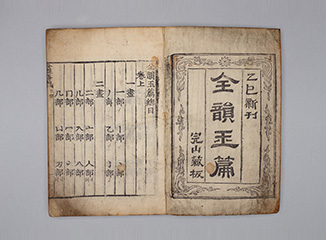 乙巳新刊
全韻玉篇
完山藏板
全韻玉篇總目
卷上
一畫
一部 丨部 丶部
丿部 乙部 亅部
二畫
二部 亠部 人部
儿部 入部 八部
冂部 冖部 冫部
几部 凵部 刀部